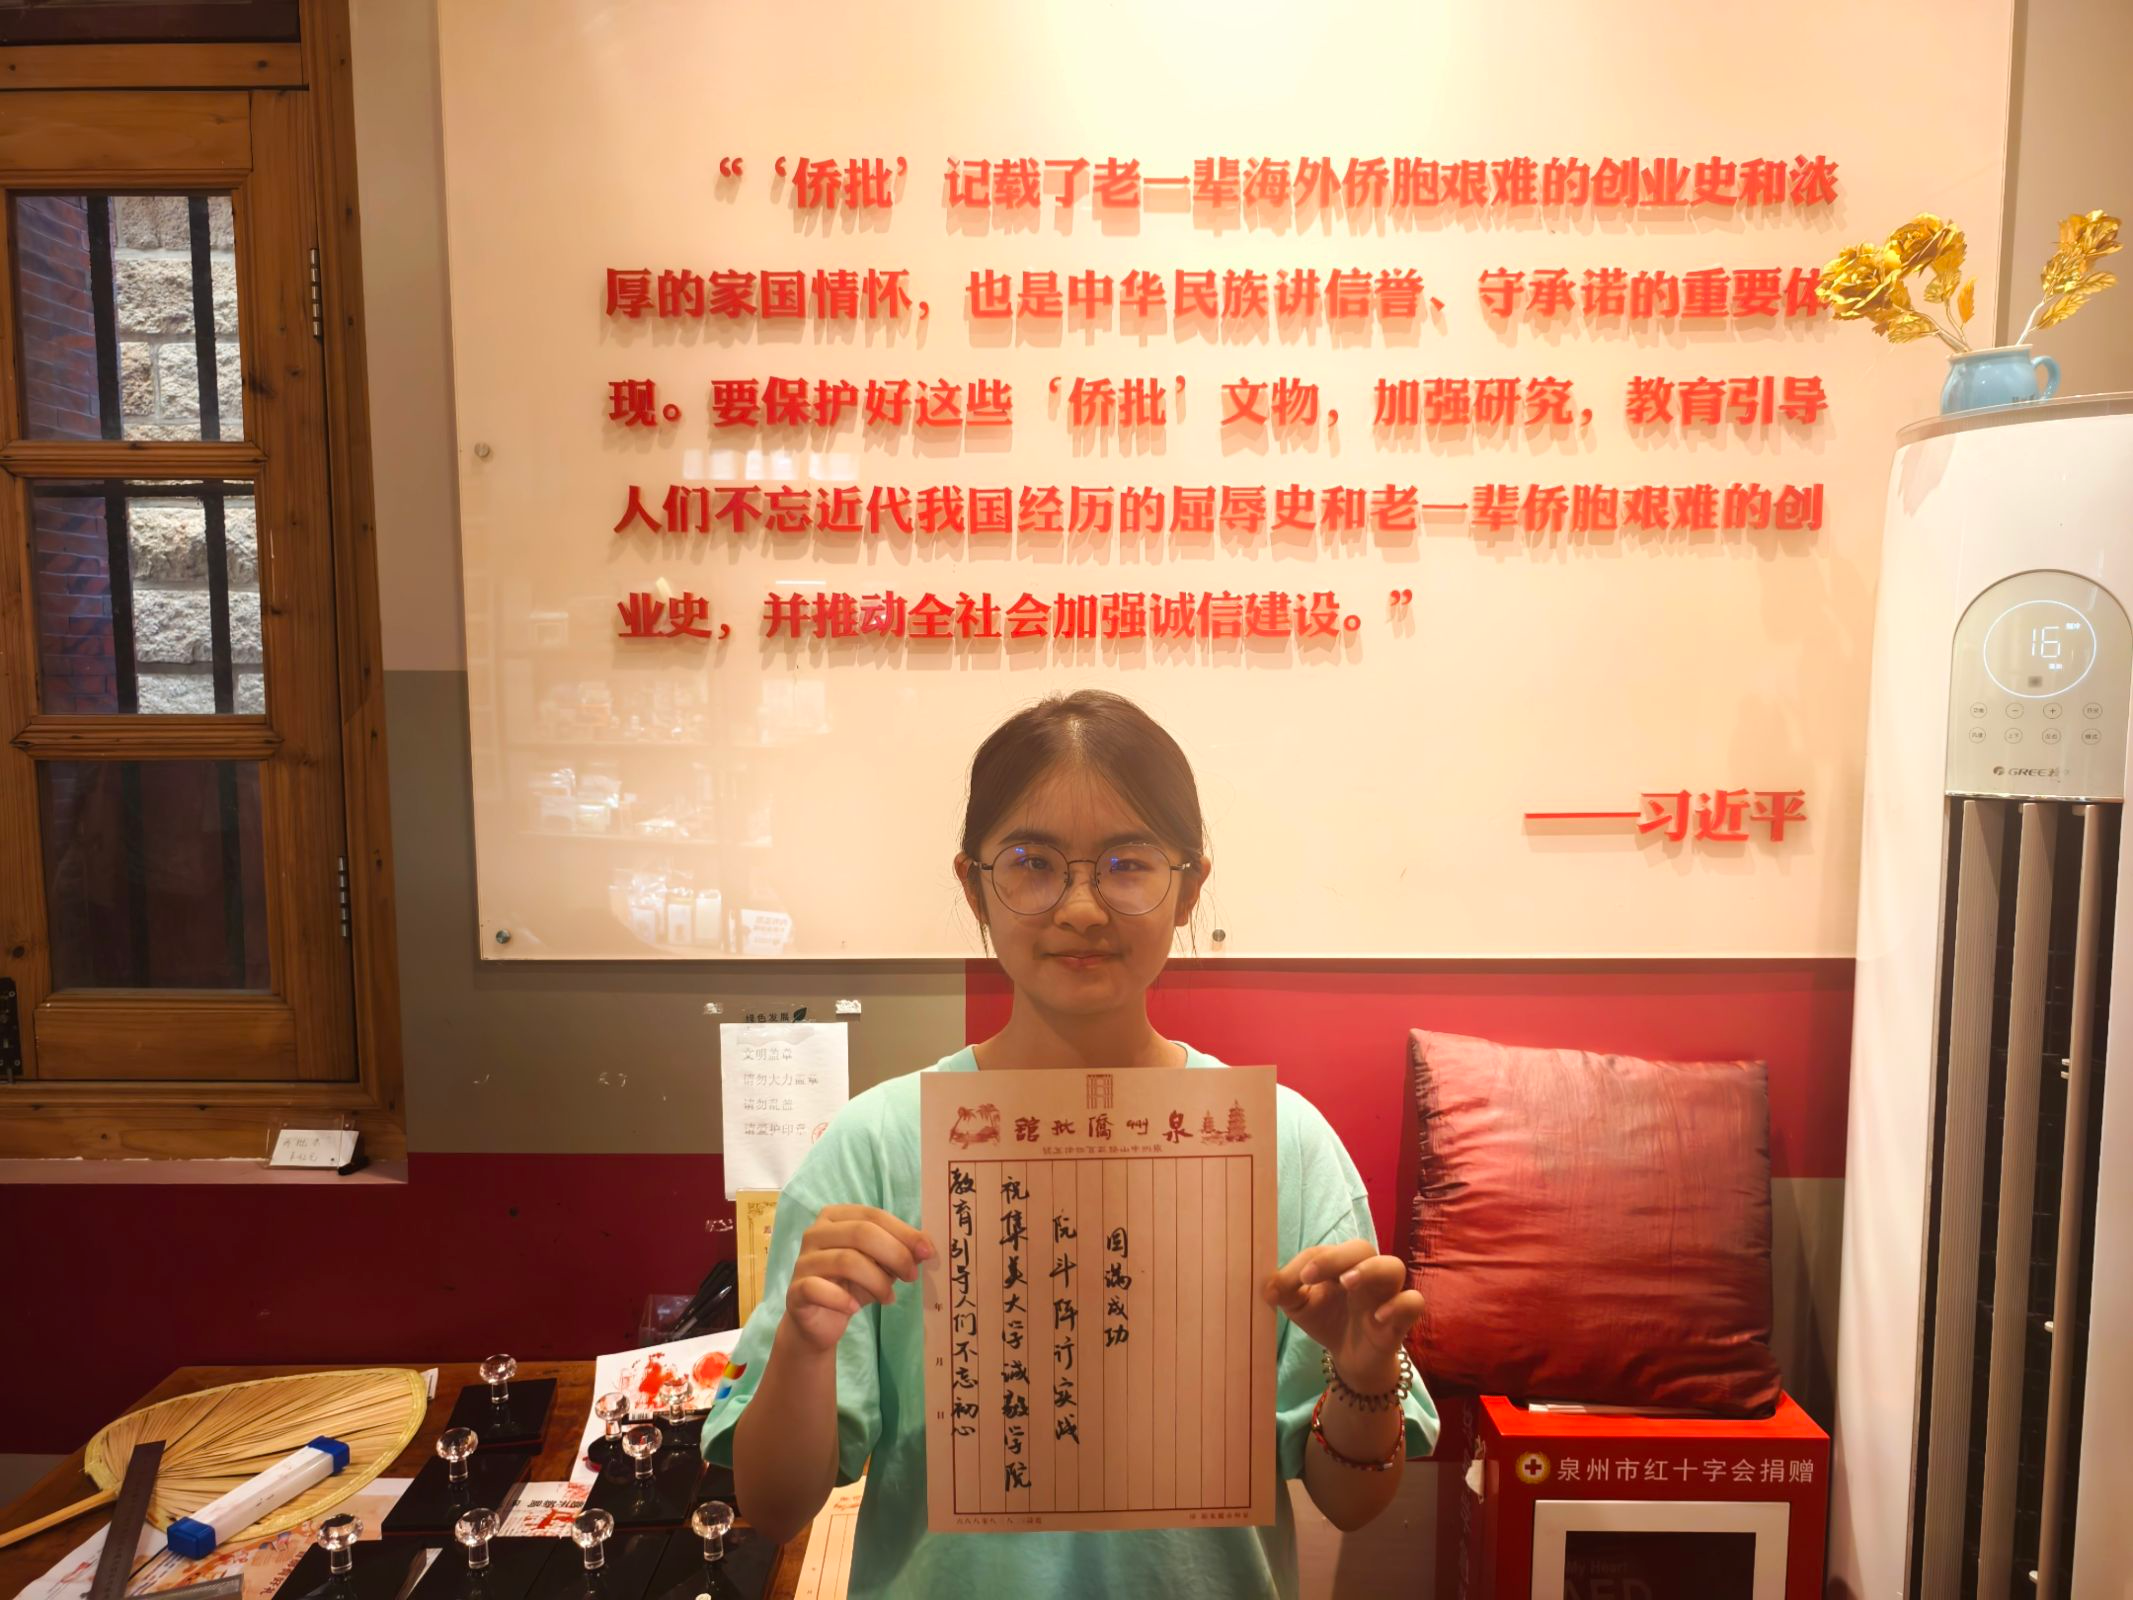 “‘侨批’记载了老一辈海外侨胞艰难的创业史和浓
厚的家国情怀，也是中华民族讲信誉、守承诺的重要体
现。要保护好这些‘侨批’文物，加强研究，教育引导
人们不忘近代我国经历的屈辱史和老一辈侨胞艰难的创
业史，并推动全社会加强诚信建设。”
——习近平
16
GREE
绿色发展
文明盖章
请勿大力盖章
请勿乱盖
请爱护印章
館批僑州泉
教育引导人们不忘初心
祝集美大学诚毅学院
阮斗阵行实战
圆满成功
年
月
日
泉州市红十字会捐赠
My Heart
AED